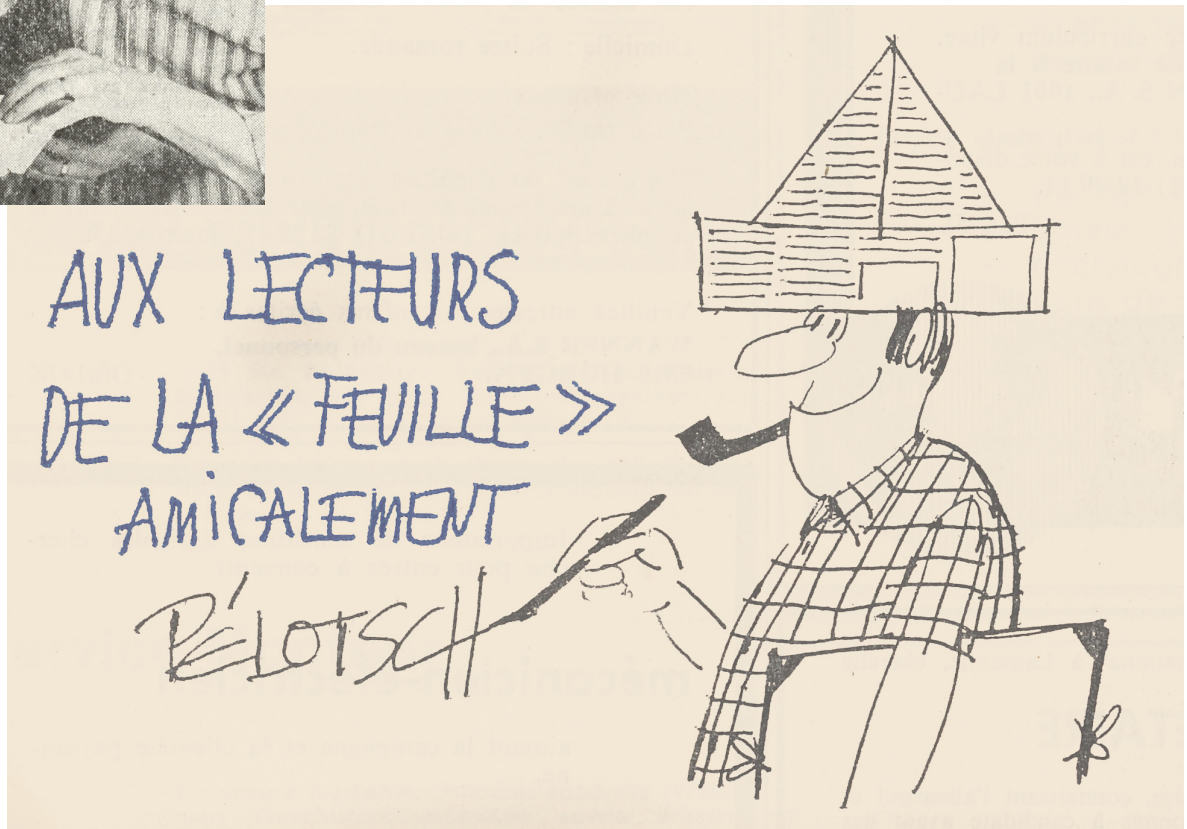 AUX LECTEURS
DE LA « FEUILLE »
AMiCALEMENT
PÉLOTSCH